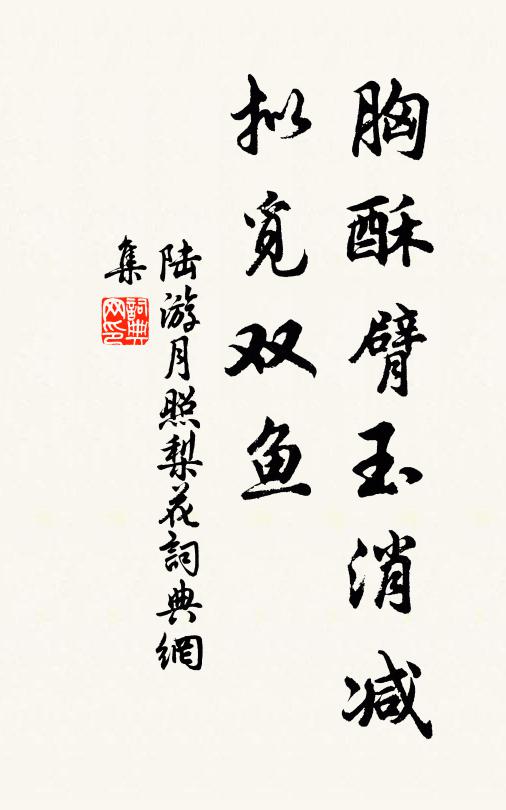 胸酥臂玉消减
拟觅双鱼
陆游月照梨花詞典網
集
詞典
网印